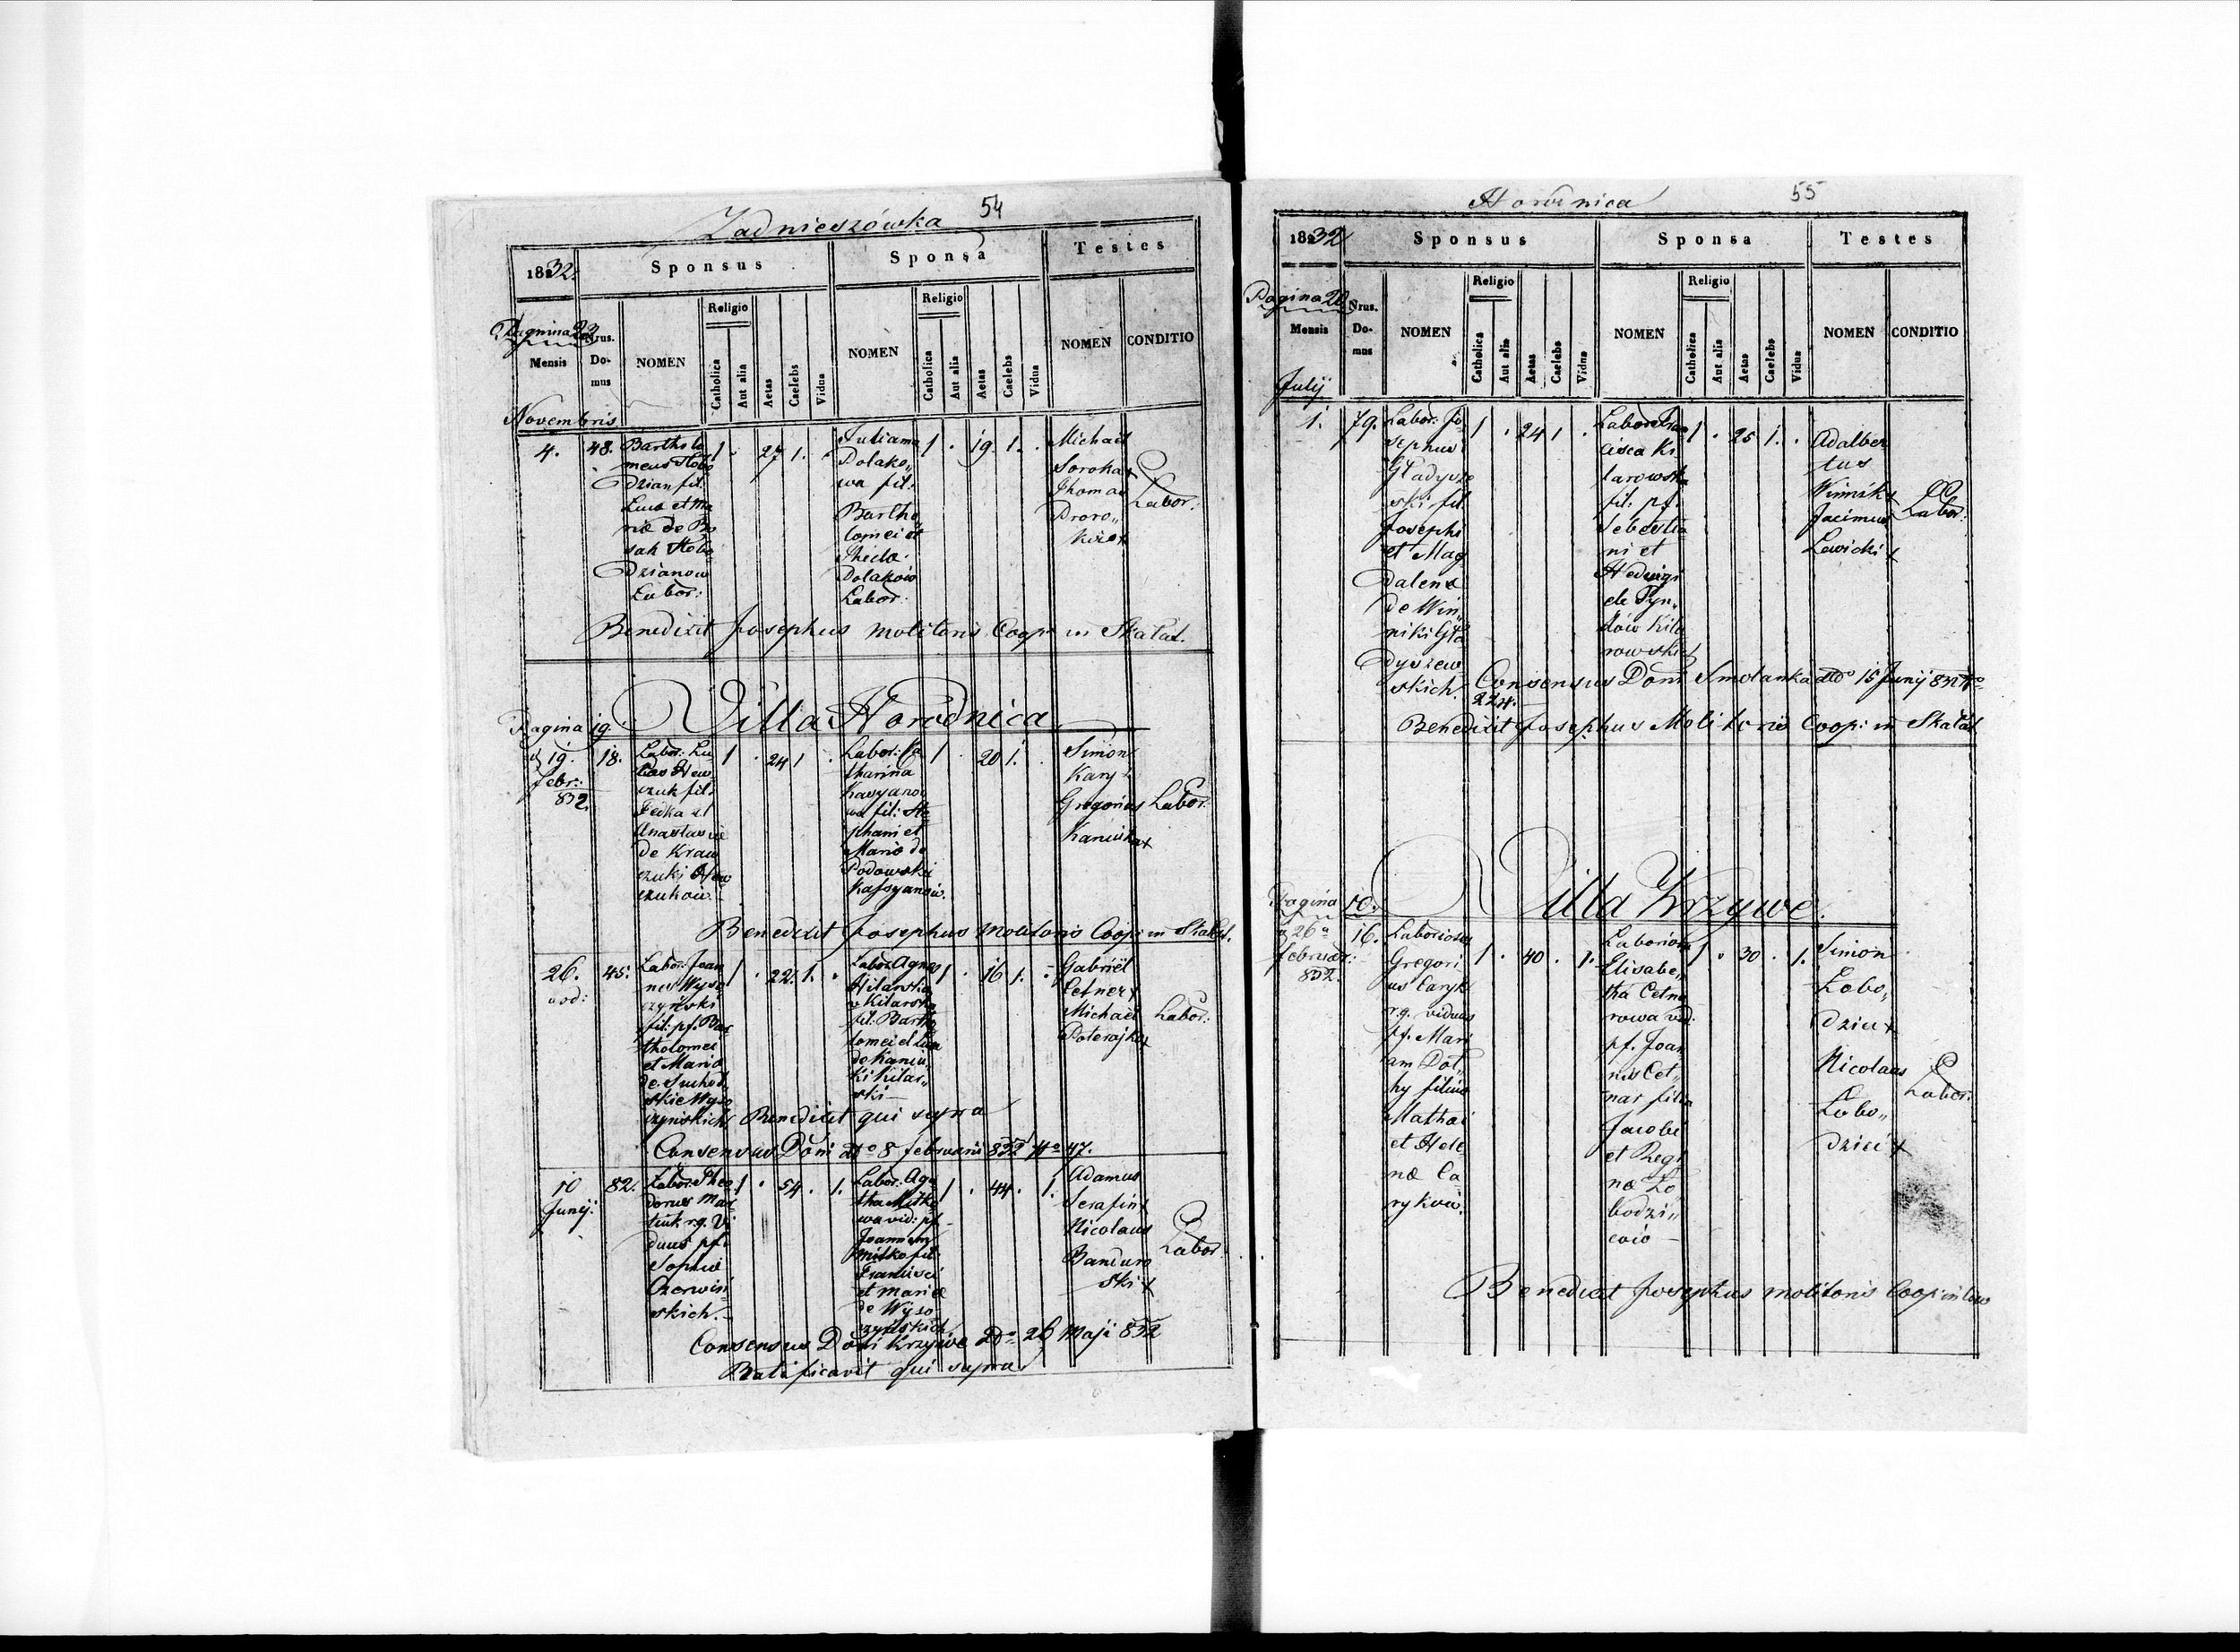 Zadnieszówka 54
1832 Sponsus Sponsa Testes
Pagina 23
Mensis Nrus. Domus NOMEN Religio Catholica Aut alia Aetas Caelebs Vidua NOMEN Religio Catholica Aut alia Aetas Caelebs Vidua NOMEN CONDITIO
Novembris
4. 48.
Bartholo
meus Kobo
dzian fil.
Luca et Ma
riæ de Bo
sak Kobo
dzianow
Labor:
1 . 27 1. .
Juliama
Polako„
wa fil:
Bartho
lomei et
Thecla
Polaków
Labor:
1 . 19 1. .
Michael
Soroka x
Thomas
Proro„
ków x
Labor.
Benedixit Josephus Molitoris Coop: in Skałat.
Villa Horodnica
Pagina 19.
d 19. 18.
febr:
832.
Labor: Lu
cas Hew
czuk fil:
Fedka et
Anastasiæ
de Kraw
czuki Hew
czuków.
1 . 24 1 .
Labor: Ca
tharina
Kasyano
wa fil: Ste
phani et
Mariæ de
Podowski
Kassyanów.
1 . 20 1. .
Simon
Kary x
Gregorius
Kaniuka x
Labor:
Benedixit Josephus Molitoris Coop: in Skałat.
26. 45.
eod:
Labor: Joan
nes Wyso
czyński
fil: pf. Bar
tholomei
et Mariæ
de Suchod
skie Wyso
czyńskich
1 . 22. 1. .
Labor: Agnes
Hilarska
v Kilarska
fil: Bartho
lomei et Luca
de Kaniu
ki Kilar„
ski
1 . 16 1. .
Gabriel
Cetner x
Michael
Poterajko x
Labor:
Benedixit qui supra
Consensus Domi ddo 8 februarii 832 No 47.
10 82.
Junij.
Labor: Theo
dorus Mar
tiuk r.g. Vi
duus pf.
Sophia
Czerwiń
skich.
1 . 54 . 1.
Labor: Aga
tha Mitko
wa vid: pf
Joannem
Mitko fil:
Francisci
et Mariæ
de Wyso
czyńskich
1 . 44 . 1.
Adamus
Serafin x
Nicolaus
Banduro
ski x
Labor.
Consensus Domi Krzywe ddo 26 Maji 832
Ratificavit qui supra
Horodnica 55
1832 Sponsus Sponsa Testes
Pagina 20
Mensis Nrus. Domus NOMEN Religio Catholica Aut alia Aetas Caelebs Vidua NOMEN Religio Catholica Aut alia Aetas Caelebs Vidua NOMEN CONDITIO
Julij
1. 79.
Labor: Jo
sephus
Gładysze
ski fil
Josephi
et Mag
dalenæ
de Win„
niki Gła
dyszew
skich.
1 . 24 1 .
Labor: Fran
cisca Ki
larowska
fil: pf.
Sebestia
ni et
Hedwigi
de Tyn„
dów Kila
rowski
1 . 25 1. .
Adalber
tus
Winnik x
Jacimus
Lewicki x
Labor:
Consensus Domi Smolanka ddo 15 Junij 832 No
224.
Benedixit Josephus Molitoris Coop: in Skałat
Villa Krzywe.
Pagina 10.
d 26a 16.
februar:
832.
Laboriosus
Gregori
us Caryk
r.g. viduus
pf. Mari
am Dol„
hy filius
Mathæi
et Hele
næ Ca
ryków.
1 . 40 . 1.
Laboriosa
Elisabe„
tha Cetne
rowa vid.
pf. Joan
nis Cet„
nar filia
Jacobi
et Regi
næ Lo„
bodzi„
ców
1 . 30 . 1.
Simon
Lobo„
dziu x
Nicolaus
Lobo„
dzici x
Labor.
Benedixit Josephus Molitoris Coop